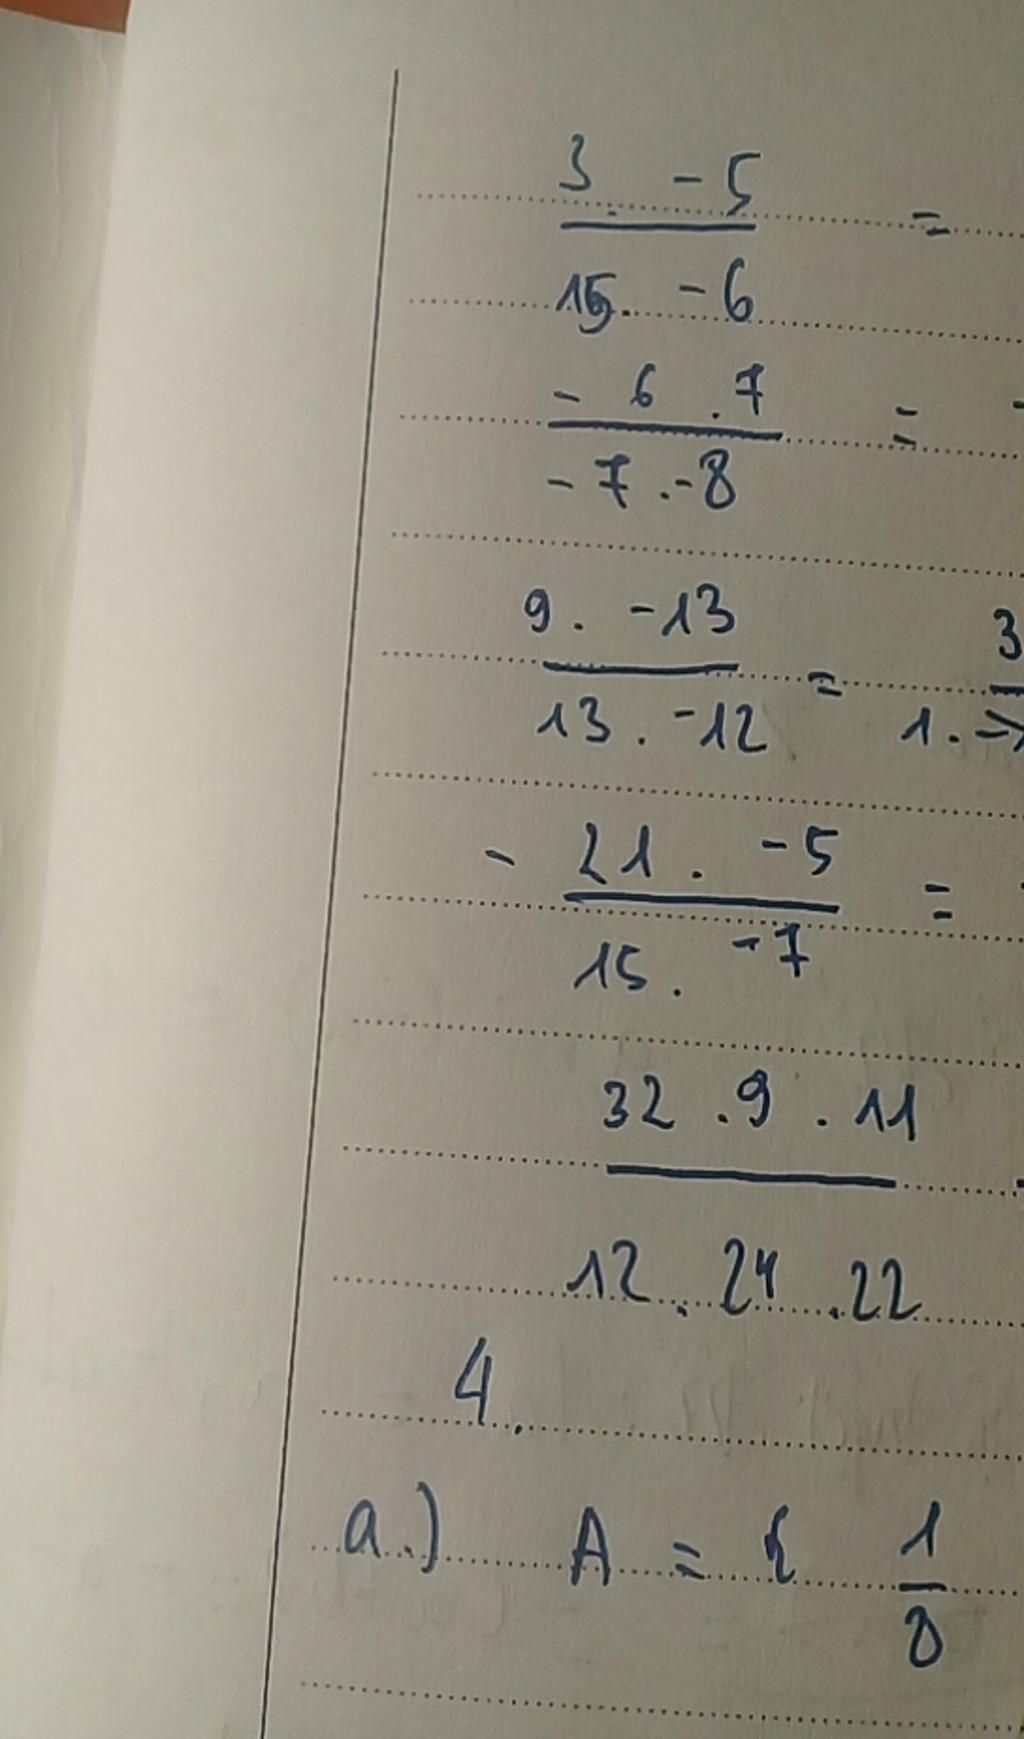 3. -5 =
15. -6
- 6 .7 = -
- 7 .-8
9. -13 = 3
13. -12 1.
- 21. -5 = -
15. -7
32 .9 . 11
12. 24 .22
4.
a.) A = { 1
8